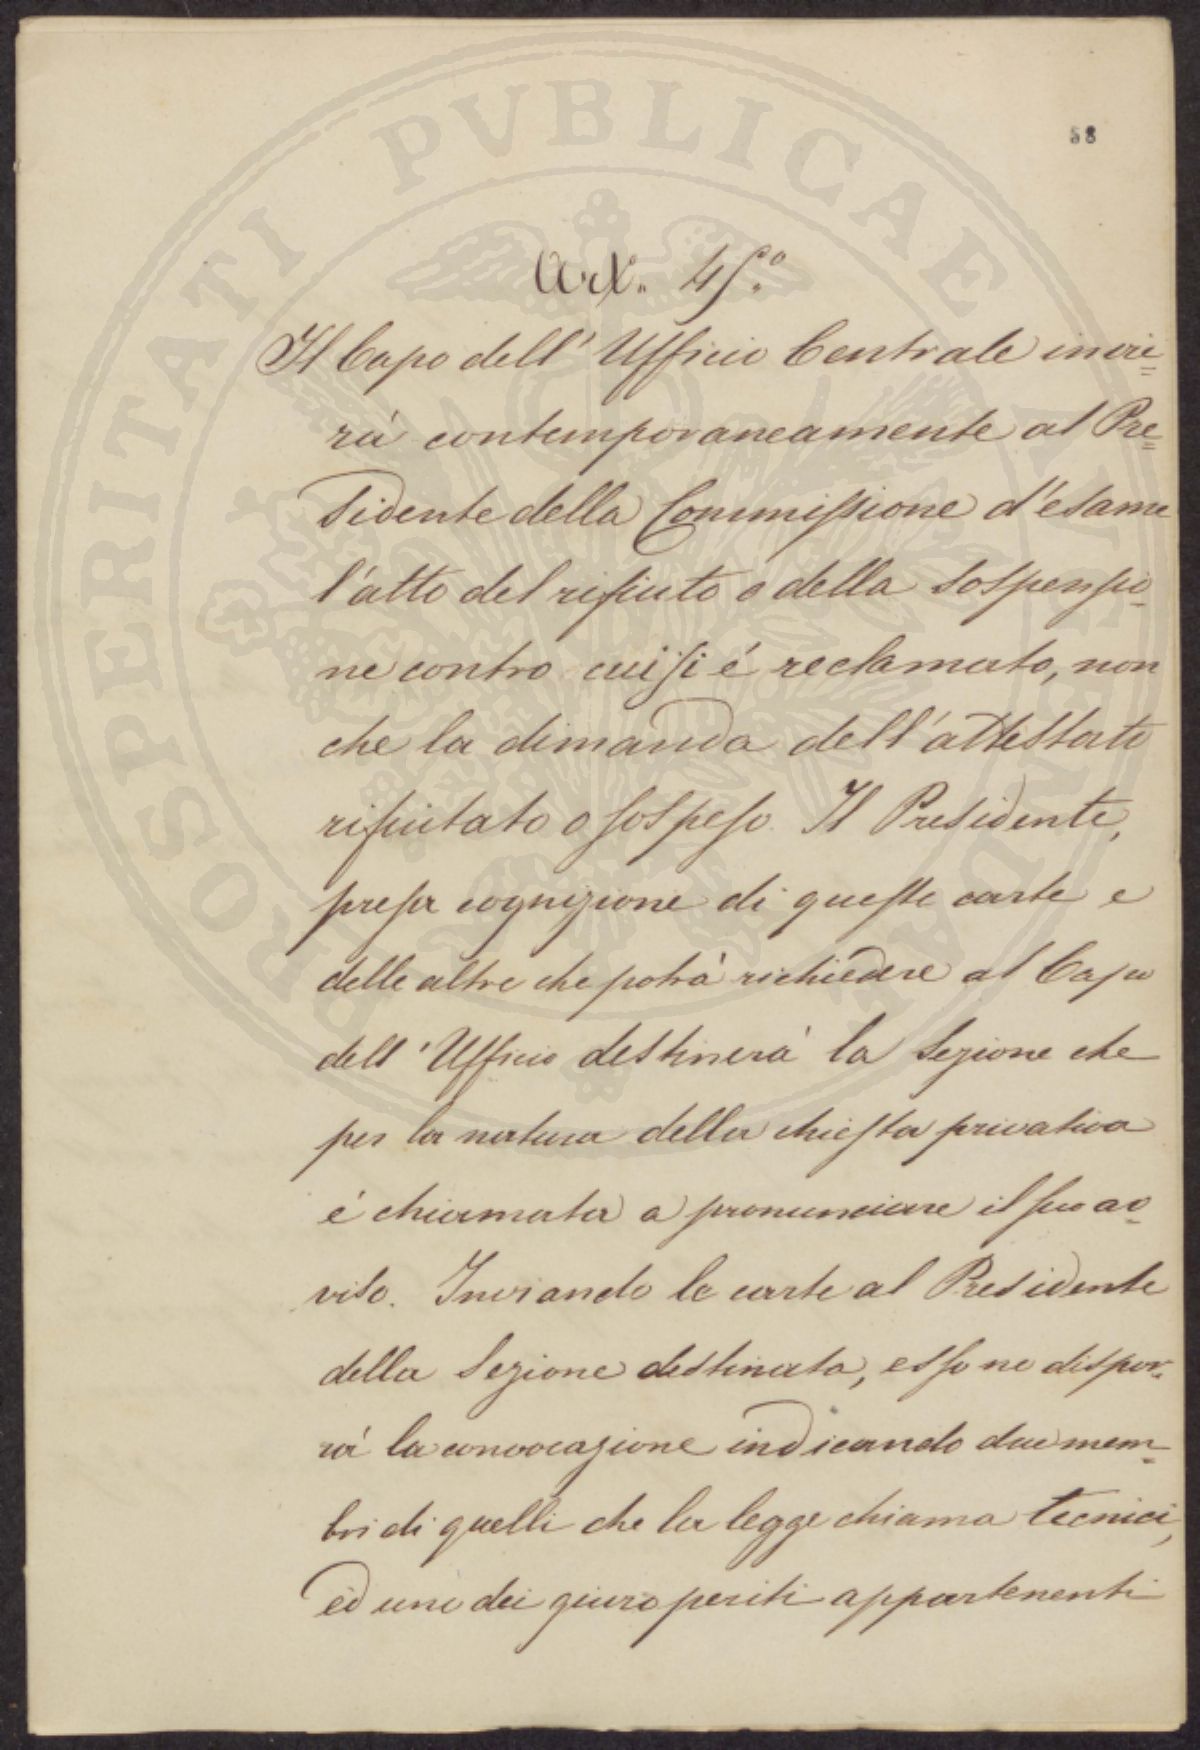 58
PROSPERITATI PVBLICAE AVGENDAE
Art. 45.º
Il Capo dell' Ufficio Centrale invie=
rà contemporaneamente al Pre=
sidente della Commissione d'esame
l'atto del rifiuto o della sospensio=
ne contro cui si é reclamato, non
che la dimanda dell'attestato
rifiutato o sospeso. Il Presidente,
presa cognizione di queste carte e
delle altre che potrà richiedere al Capo
dell' Ufficio destinerà la Sezione che
per la natura della chiesta privativa
é chiamata a pronunciare il suo av=
viso. Inviando le carte al Presidente
della Sezione destinata, esso ne dispor=
rà la convocazione indicando due mem=
bri di quelli che la legge chiama tecnici,
ed uno dei giuroperiti appartenenti